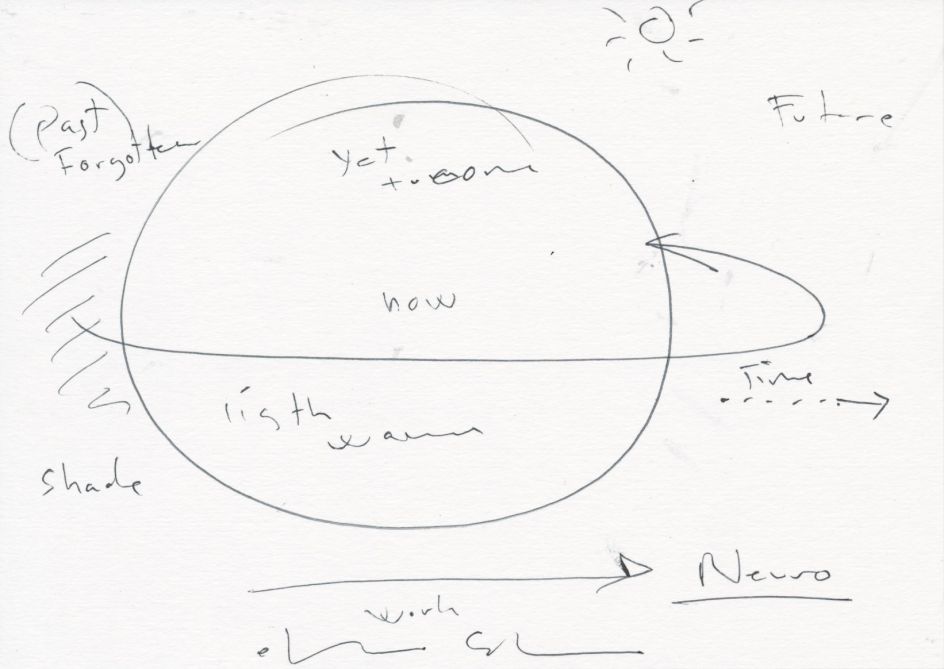 Future
(Past
Forgotten
yet
to come
now
Time
ligth
warm
Shade
Neuro
work